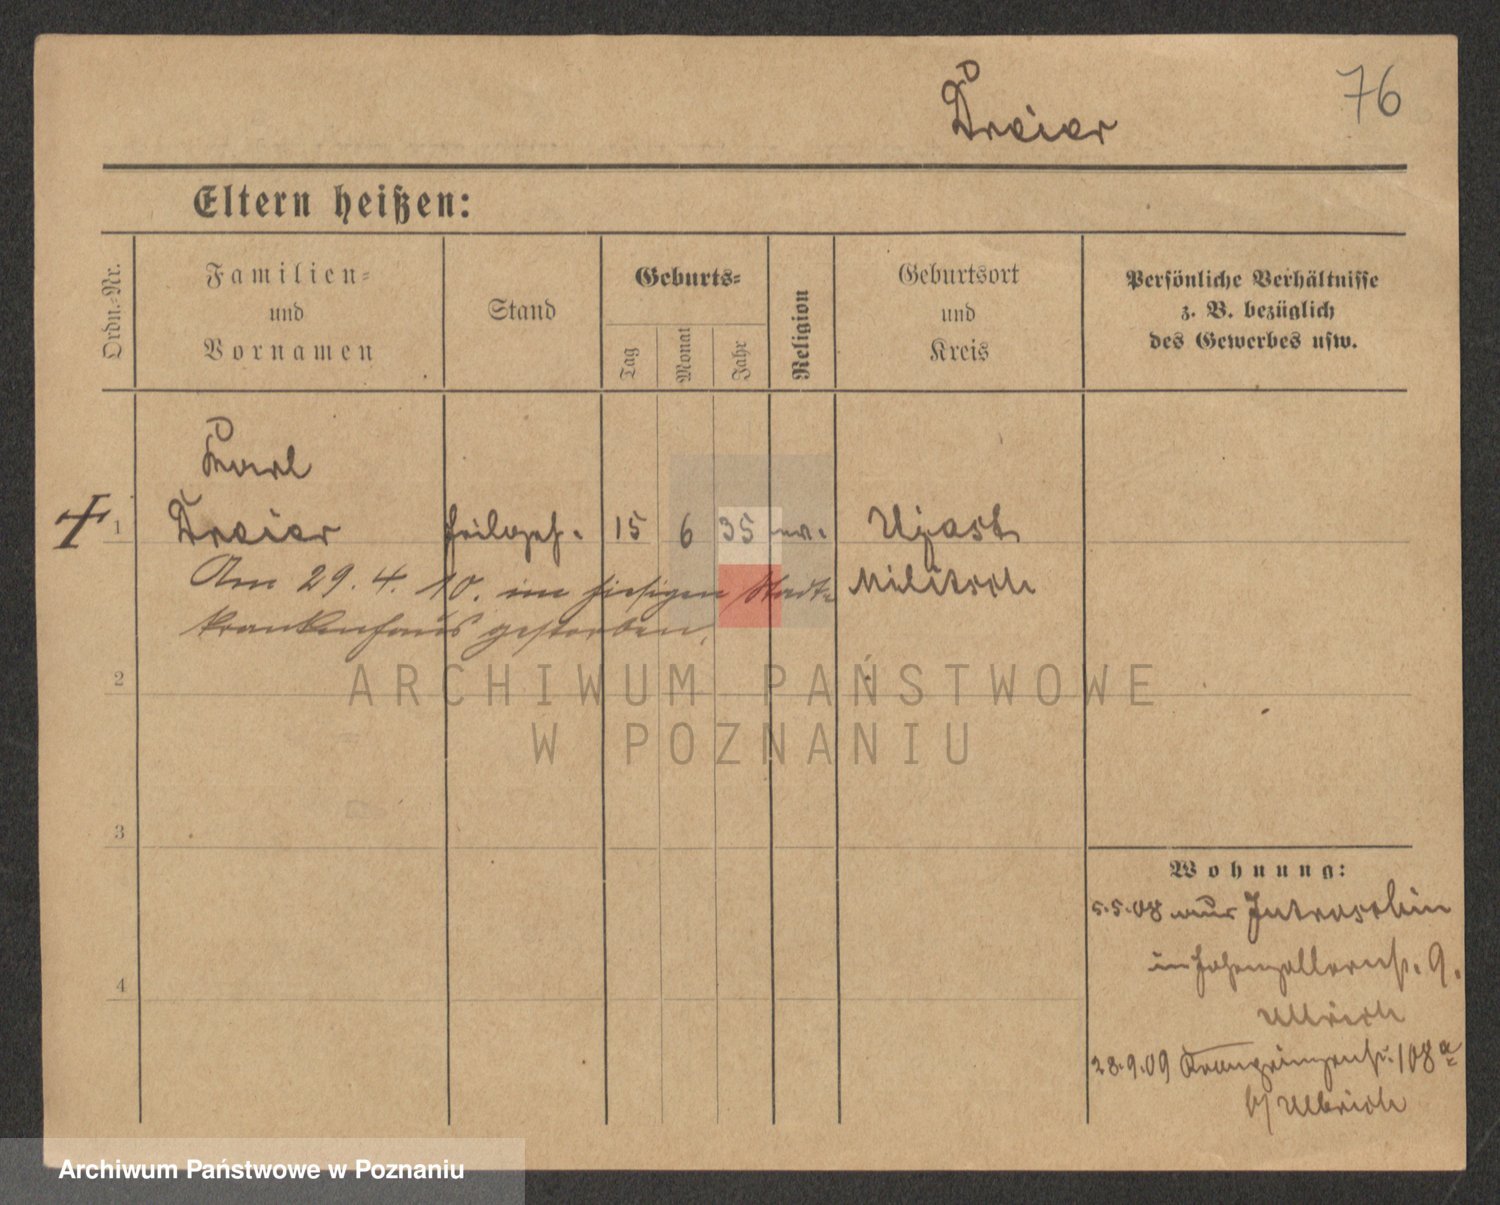 76
Dreier
Eltern heißen:
Ordn.-Nr.
Familien-
und
Vornamen
Stand
Geburts-
Tag
Monat
Jahr
Religion
Geburtsort
und
Kreis
Persönliche Verhältnisse
z. B. bezüglich
des Gewerbes usw.
Karl
1 Dreier 15 6 35 Ujast
Am 29. 4. 10. im hiesigen Stadt- Militsch
krankenhaus gestorben.
2
3
4
ARCHIWUM PAŃSTWOWE
W POZNANIU
Wohnung:
5.5.08 aus Jutroschin
in Hohenzollernst. 9.
Ullrich
28.9.09 Kronprinzenstr. 108a
b/ Ulbrich
Archiwum Państwowe w Poznaniu